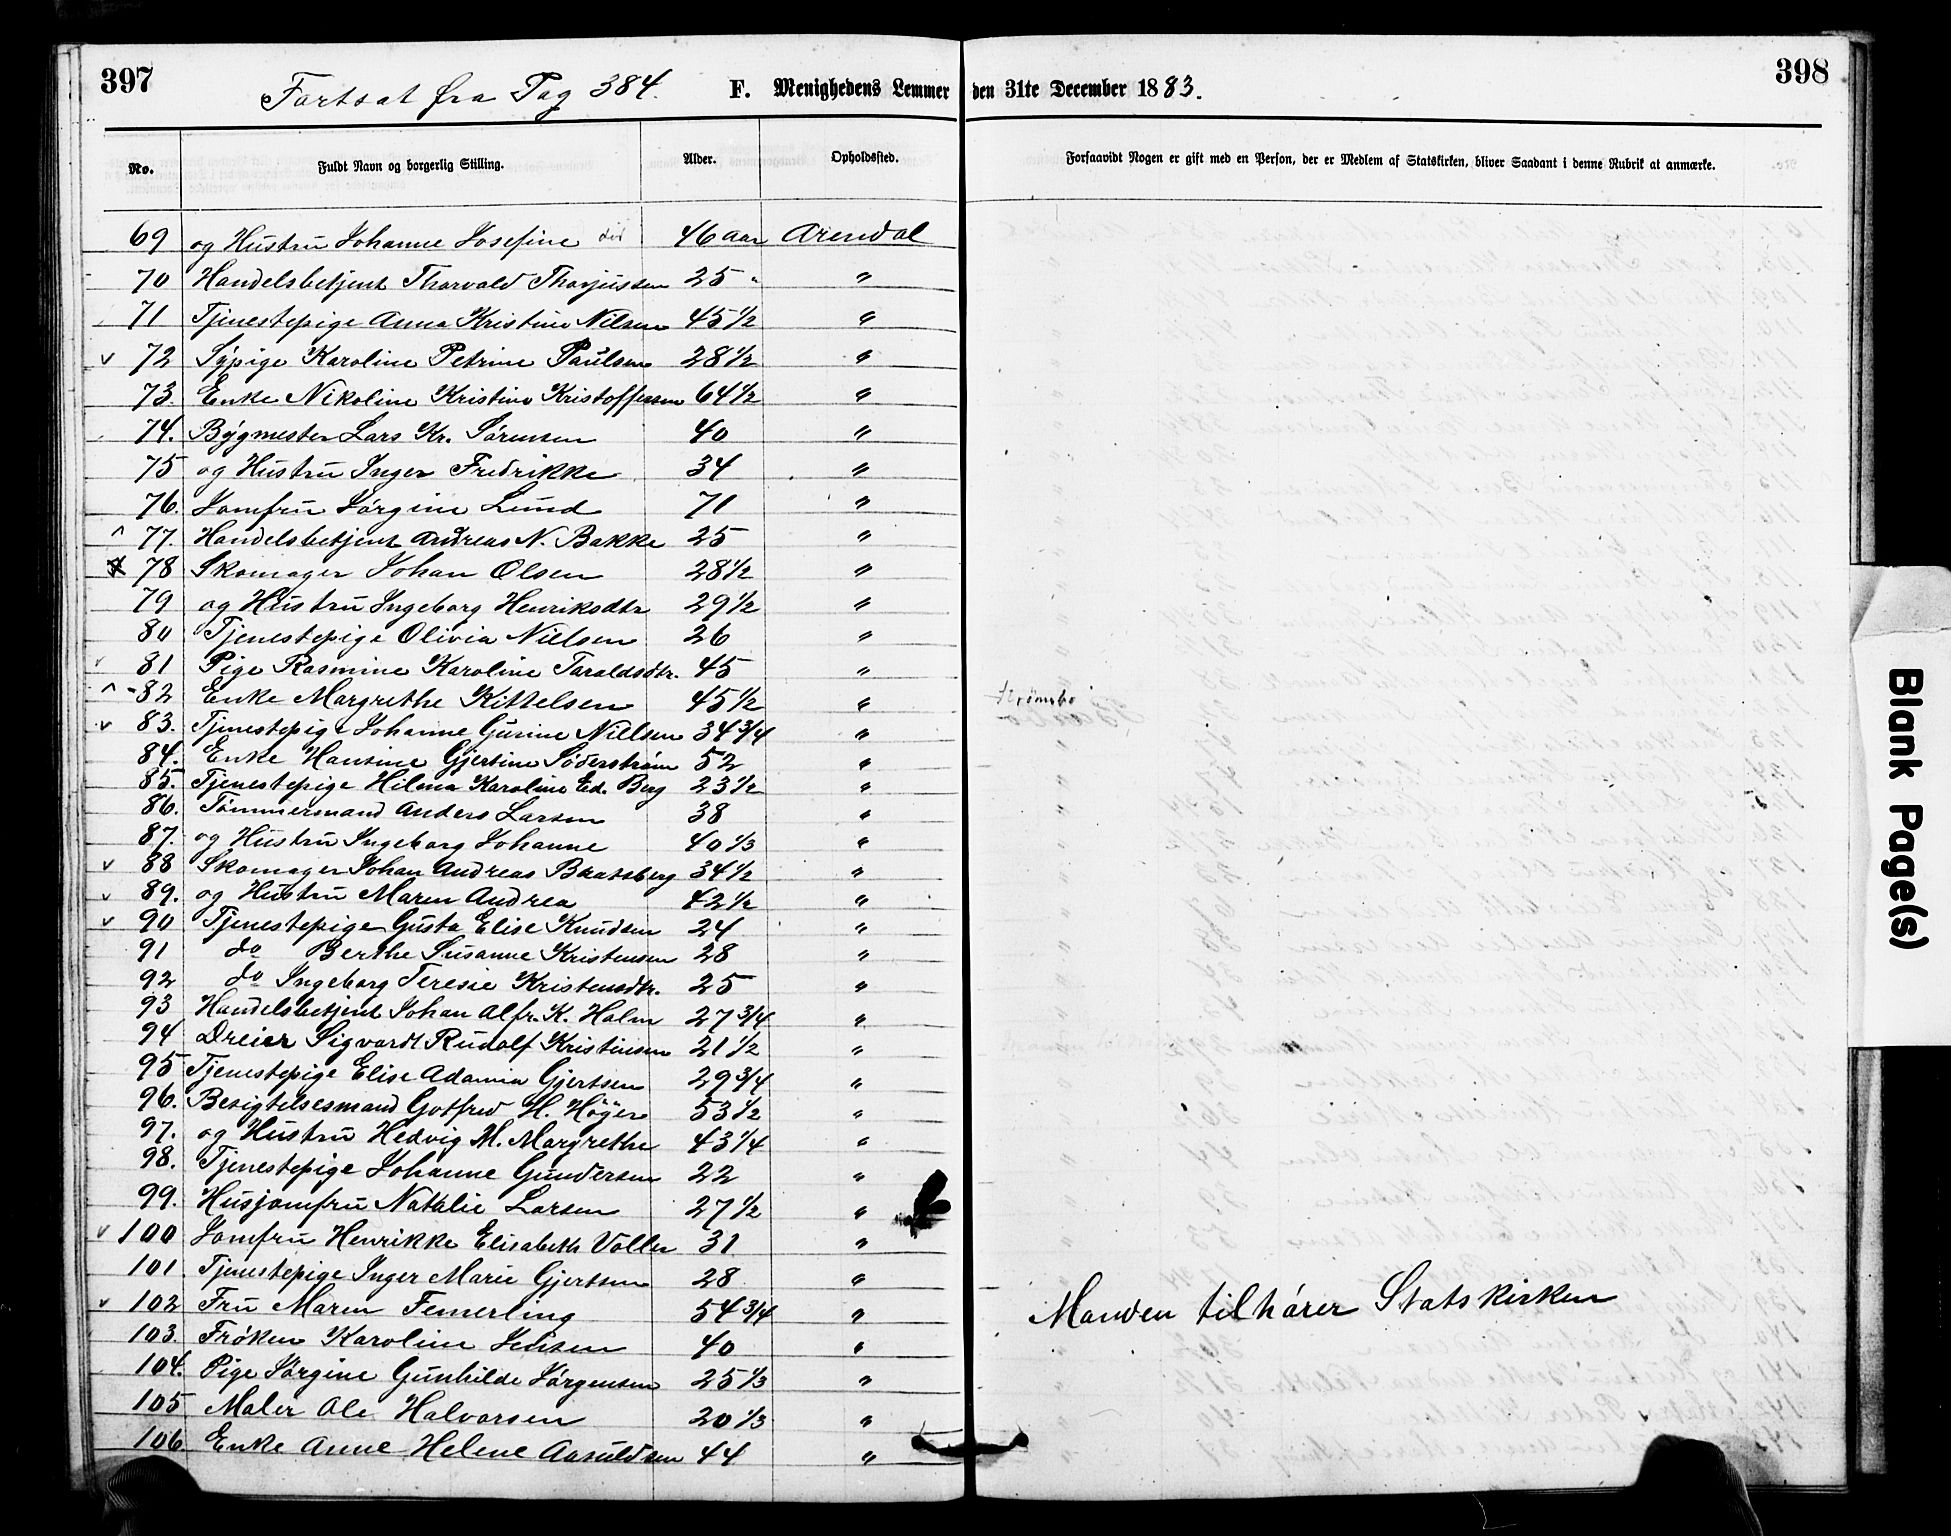 397
Fortsat fra Pag 384.
F. Menighedens Lemmer den 31te December 1883.
398
No. Fuldt Navn og borgerlig Stilling. Alder. Opholdssted. Forsaavidt Nogen er gift med en Person, der er Medlem af Statskirken, bliver Saadant i denne Rubrik at anmærke.
69 og Hustru Johanne Josefine 46 aar Arendal
70 Handelsbetjent Thorvald Thorjussen 25 " "
71 Tjenestepige Anna Kristine Nilsen 45 1/2 "
v 72 Sypige Karoline Petrine Paulsen 28 1/2 "
73. Enke Nikoline Kristine Kristoffersen 64 1/2 "
74. Bygmester Lars Kr. Sørensen 40 "
75 og Hustru Inger Fredrikke 34 "
76. Jomfru Jørgine Lund 71 "
^ 77. Handelsbetjent Andreas N. Bakke 25 "
78 Skomager Johan Olsen 28 1/2 "
79 og Hustru Ingeborg Henriksdtr 29 1/2 "
80 Tjenestepige Olivia Nielsen 26 "
v 81 Pige Rasmine Karoline Taraldsdtr. 45 "
^ -82 Enke Margrethe Kittelsen 45 1/2 " Strømsbo
v 83. Tjenestepige Johanne Gurine Nielsen 34 3/4 "
84. Enke Hansine Gjertine Söderstrøm 52 "
85. Tjenestepige Hilma Karoline Ed. Berg 23 1/2 "
86. Tømmermand Anders Larsen 38 "
87. og Hustru Ingeborg Johanne 40 1/3 "
v 88 Skomager Johan Andreas Bratsberg 34 1/2 "
v 89. og Hustru Maren Andrea 42 1/2 "
v 90 Tjenestepige Gusta Elise Knudsen 24 "
91 do Berthe Susanne Kristensen 28 "
92 do Ingeborg Teresie Kristensdtr. 25 "
93 Handelsbetjent Johan Alfr. K. Holm 27 3/4 "
94 Dreier Sigvardt Rudolf Kristensen 21 1/2 "
95 Tjenestepige Elise Adamia Gjertsen 29 3/4 "
96. Besigtelsesmand Gotfred H. Höyer 53 1/2 "
97. og Hustru Hedvig M. Margrethe 43 1/4 "
98. Tjenestepige Johanne Gundersen 22 "
99. Husjomfru Natalie Larsen 27 1/2 "
v 100 Jomfru Henrikke Elisabeth Voller 31 "
101. Tjenestepige Inger Marie Gjertsen 28 "
v 102 Fru Maren Femerling 54 3/4 " Manden tilhører Statskirken
103. Frøken Karoline Jensen 40 "
104. Pige Jørgine Gunhilde Jørgensen 25 1/3 "
105 Maler Ole Halvorsen 20 1/3 "
106. Enke Anne Helene Aasuldsen 44 "
Blank Page(s)